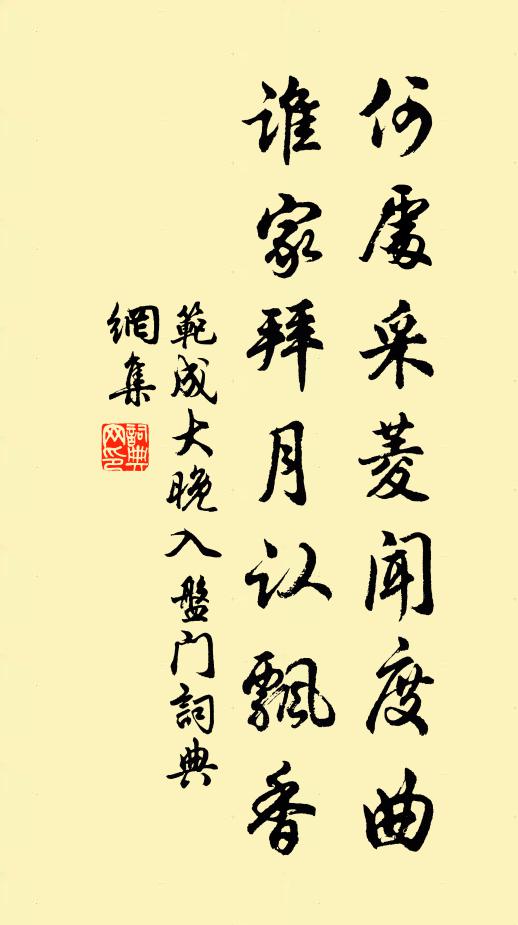 何處采菱聞度曲
誰家拜月认飄香
範成大晚入盤门詞典
網集
詞典网印